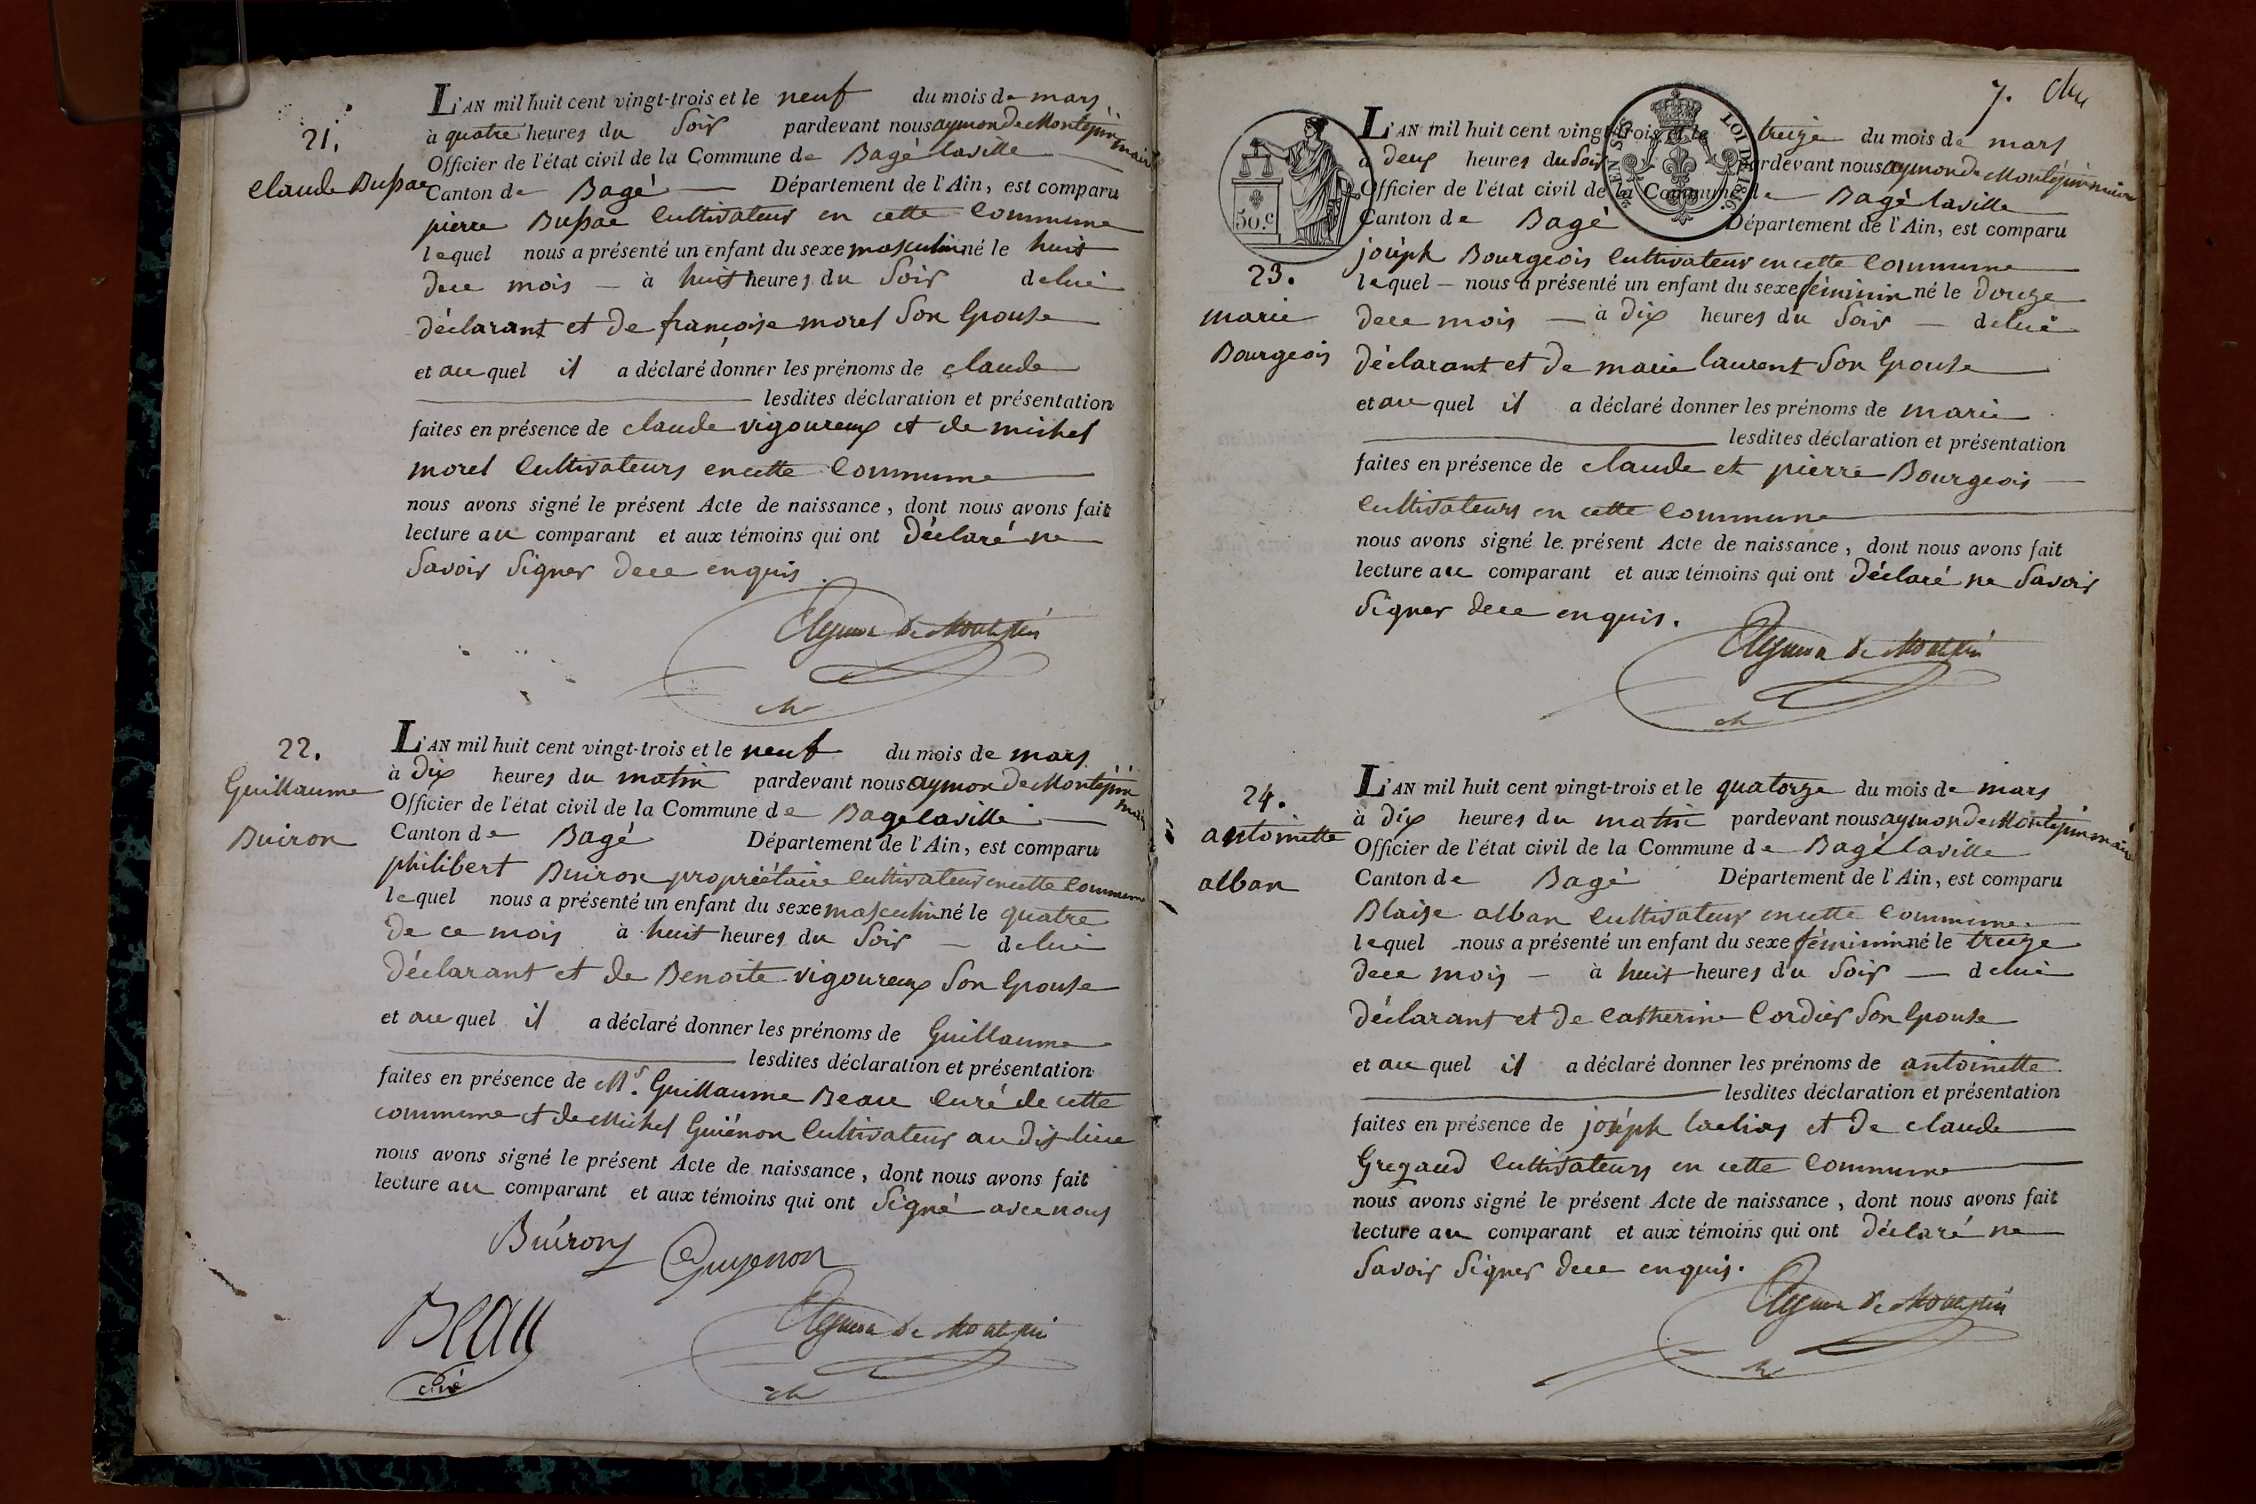 21.
Claude Dussac
L'AN mil huit cent vingt-trois et le neuf du mois de mars
à quatre heures du soir pardevant nous aymon de Montépin maire
Officier de l'état civil de la Commune de Bagé laville
Canton de Bagé Département de l'Ain, est comparu
pierre Dussac cultivateur en cette commune
lequel nous a présenté un enfant du sexe masculin né le huit
de ce mois à huit heures du soir de lui
déclarant et de françoise morel son épouse
et au quel il a déclaré donner les prénoms de claude
lesdites déclaration et présentation
faites en présence de claude vigoureux et de michel
morel cultivateurs en cette commune
nous avons signé le présent Acte de naissance, dont nous avons fait
lecture au comparant et aux témoins qui ont déclaré ne
savoir signer de ce enquis
Aymon de Montépin
22.
Guillaume
Buiron
L'AN mil huit cent vingt-trois et le neuf du mois de mars
à dix heures du matin pardevant nous aymon de Montépin maire
Officier de l'état civil de la Commune de Bagé laville
Canton de Bagé Département de l'Ain, est comparu
philibert Buiron propriétaire cultivateur en cette commune
lequel nous a présenté un enfant du sexe masculin né le quatre
de ce mois à huit heures du soir de lui
déclarant et de Benoite vigoureux son épouse
et au quel il a déclaré donner les prénoms de Guillaume
lesdites déclaration et présentation
faites en présence de Mr. Guillaume Beau curé de cette
commune et de Michel Guiénon cultivateur au dit lieu
nous avons signé le présent Acte de naissance, dont nous avons fait
lecture au comparant et aux témoins qui ont signé avec nous
Buiron Guyenon
Beau
curé
Aymon de Montépin
7.
50.c
LOI DE 1816.
L'AN mil huit cent vingt-trois et le treize du mois de mars
à deux heures du soir pardevant nous aymon de Montépin maire
Officier de l'état civil de la Commune de Bagé laville
Canton de Bagé Département de l'Ain, est comparu
23.
marie
Bourgeois
joseph Bourgeois cultivateur en cette commune
lequel nous a présenté un enfant du sexe féminin né le douze
de ce mois à dix heures du soir de lui
déclarant et de marie laurent son épouse
et au quel il a déclaré donner les prénoms de marie
lesdites déclaration et présentation
faites en présence de claude et pierre Bourgeois
cultivateurs en cette commune
nous avons signé le présent Acte de naissance, dont nous avons fait
lecture au comparant et aux témoins qui ont déclaré ne savoir
signer de ce enquis.
Aymon de Montépin
24.
antoinette
alban
L'AN mil huit cent vingt-trois et le quatorze du mois de mars
à dix heures du matin pardevant nous aymon de Montépin maire
Officier de l'état civil de la Commune de Bagé laville
Canton de Bagé Département de l'Ain, est comparu
Blaise alban cultivateur en cette commune
lequel nous a présenté un enfant du sexe féminin né le treize
de ce mois à huit heures du soir de lui
déclarant et de catherine Cordier son épouse
et au quel il a déclaré donner les prénoms de antoinette
lesdites déclaration et présentation
faites en présence de joseph et de claude
Gregaud cultivateurs en cette commune
nous avons signé le présent Acte de naissance, dont nous avons fait
lecture au comparant et aux témoins qui ont déclaré ne
savoir signer de ce enquis.
Aymon de Montépin